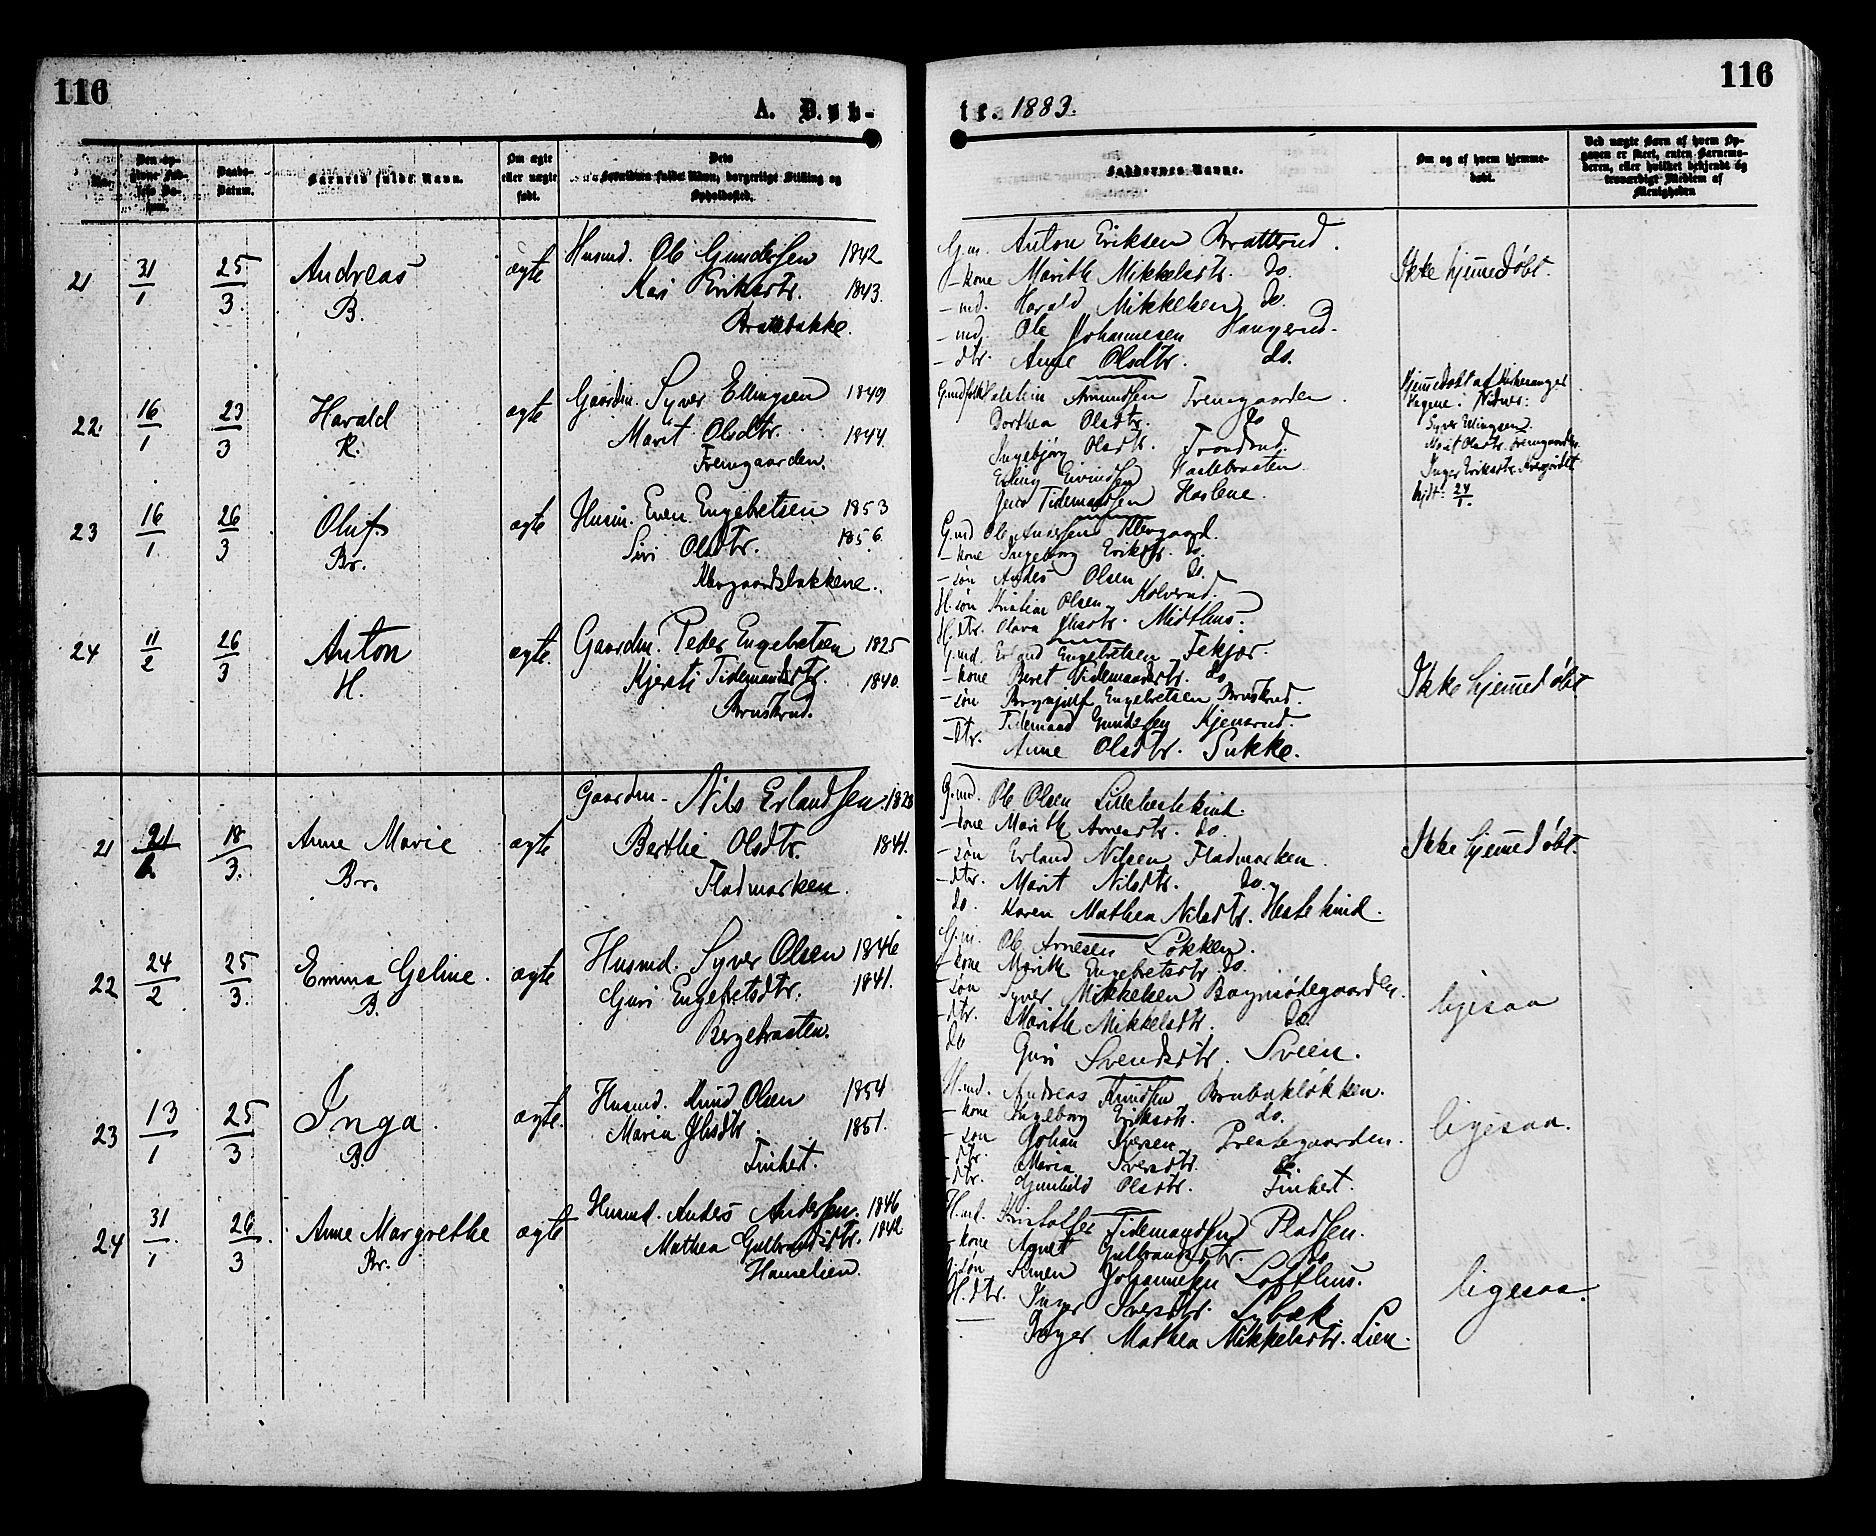 116
116
A. Døb-
te. 1883.
No.
Den op-
Daabs-
Datum.
Barnets fulde Navn.
Om ægte
eller uægte
født.
Forældres fulde Navn, borgerlige Stilling og
Opholdssted.
Faddernes Navne.
Om og af hvem hjemme-
døbt.
Ved uægte Børn af hvem Op-
gaven er skeet, enten Barnemo-
deren, eller hvilket bekjendt og
troværdigt Medlem af
Menigheden
21 31/1 25/3 Andreas ægte Husmd. Ole Gundersen 1842
B. Kari Eriksdtr. 1843.
Brattebakke.
Gm. Anton Eriksen Bratterud.
- kone Marith Mikkelsdtr. do.
- md. Harald Mikkelsen do.
- md. Ole Johannesen Haugerud.
- dtr. Anne Olsdtr. do.
Ikke hjemedøbt.
22. 16/1 23/3 Harald ægte Gaardm. Syver Ellingsen 1849
Marit Olsdtr. 1844.
Fremgaarden.
Amundsen Fremgaarden.
Dorthea Olsdtr. do
Ingebjørg Olsdtr. Trondrud.
Elling Eivindsen Haslebraaten.
Jens Tidemandsen Haslene.
Hjemedøbt af Kirkesanger
Syver Ellingsen
Marit Olsdtr. Fremgaarden
Inger Eriksdtr.
23 16/1 26/3 Oluf. ægte Husm. Even Engebretsen 1853
Br. Siri Olsdtr. 1856.
G.md Ole
- kone Ingeborg Eriksdtr. do.
- søn Anders Olsen do.
H. søn Kristian Olsen Kolverud.
H. dtr. Olava Olsdtr. Midthus.
24 11/2 26/3 Anton ægte. Gaardm. Peder Engebretsen 1825
H. Kjersti Tidemandsdtr. 1840.
Bruskrud.
G.md. Erland Engebretsen Fekjær.
- kone Beret Tidemandsdtr. do
- søn Brynjulf Engebretsen Bruskrud.
Tidemand Gundersen Kjensrud.
- Dtr. Anne Olsdtr. Sukke.
Ikke hjemedøbt
21 21/2. 18/3. Anne Marie ægte. Gaardm. Nils Erlandsen 1828
Br. Berthe Olsdtr. 1841.
Fladmarken.
G.md. Ole Olsen Lillehestekind.
- kone Marith Arnesdtr. do.
- søn Erland Nilsen Fladmarken.
- dtr. Marit Nilsdtr. do.
do. Karen Mathea Nilsdtr. Hestekind.
Ikke hjemedøbt.
22 24/2 25/3. Emma Geline. ægte Husmd. Syver Olsen 1846
B. Guri Engebretsdtr. 1841.
Bergebraaten.
G.m. Ole Arnesen Løkken.
- kone Marith Engebretsdtr. do.
- søn Syver Mikkelsen Bagnsødegaarden.
- dtr. Marith Mikkelsdtr. do.
do Guri Svendsdtr. Sveen.
ligesaa
23 13/1 25/3 Inga. ægte. Husmd. Knud Olsen 1854
B. Maria Olsdtr. 1851.
Finhert.
H.md. Andreas Knudsen Brubakløkken.
- kone Ingeborg Eriksdtr. do.
- søn Johan Iversen Prestegaarden.
- dtr. Maria Iversdtr. do
- dtr. Gunhild Olsdtr. Finhert.
ligesaa.
24 31/1 26/3 Anne Margrethe ægte Husmd. Anders Andersen. 1846
Br. Mathea Gulbrandsdtr.
Hamelien.
H.md. Kristoffer Tidemandsen Pladsen.
- kone Agnet Gulbrandsdtr. do
G. søn Simen Johannesen Lofthus.
H. dtr. Inger Iversdtr. Lybæk.
- Inger Mathea Mikkelsdtr. Lien.
ligesaa.